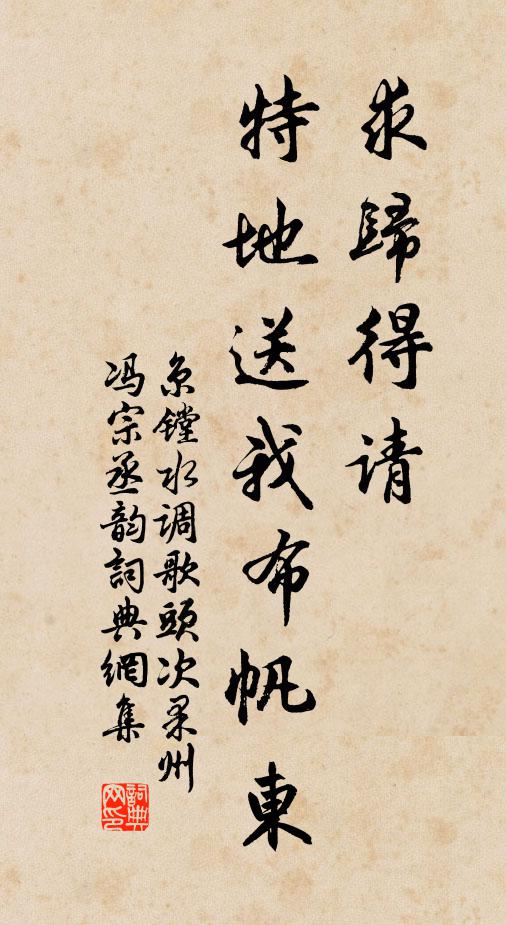 求歸得请
特地送我布帆東
京镗水调歌頭次果州
冯宗丞韵詞典網集
詞典网印